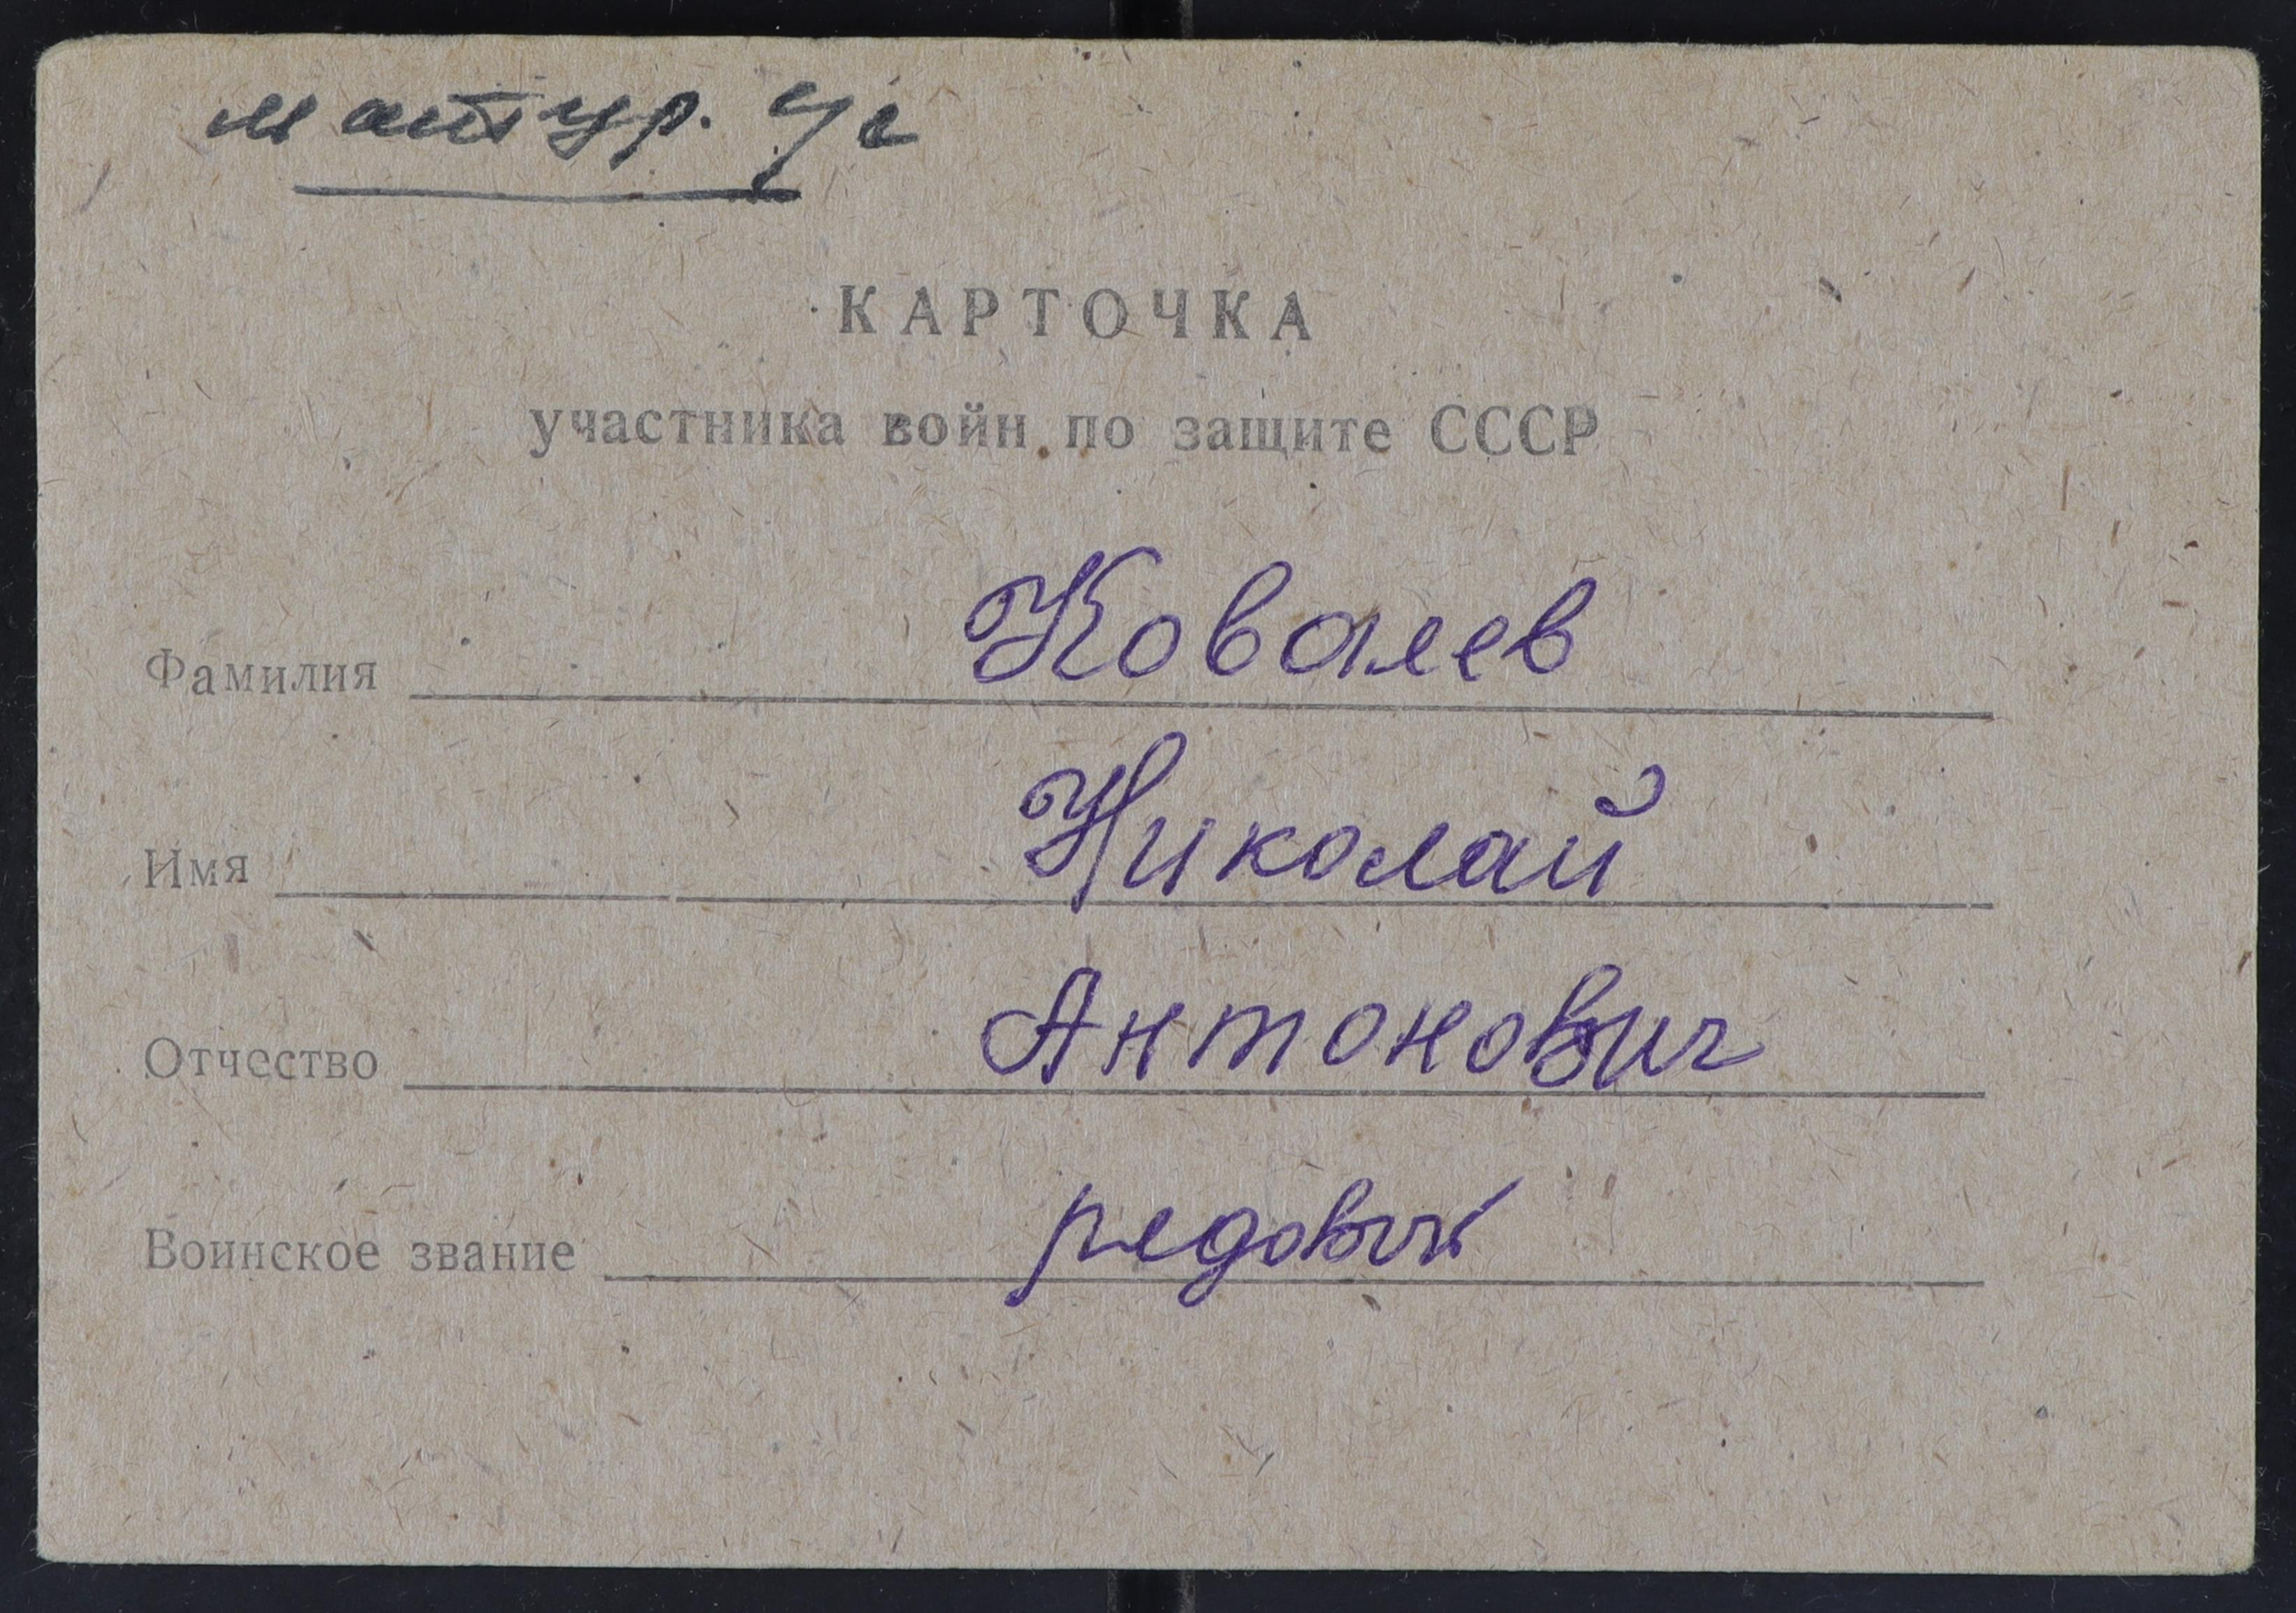 матур. ус
КАРТОЧКА
участника войн по защите СССР
Фамилия Ковалев
Имя Николай
Отчество Антонович
Воинское звание рядовой